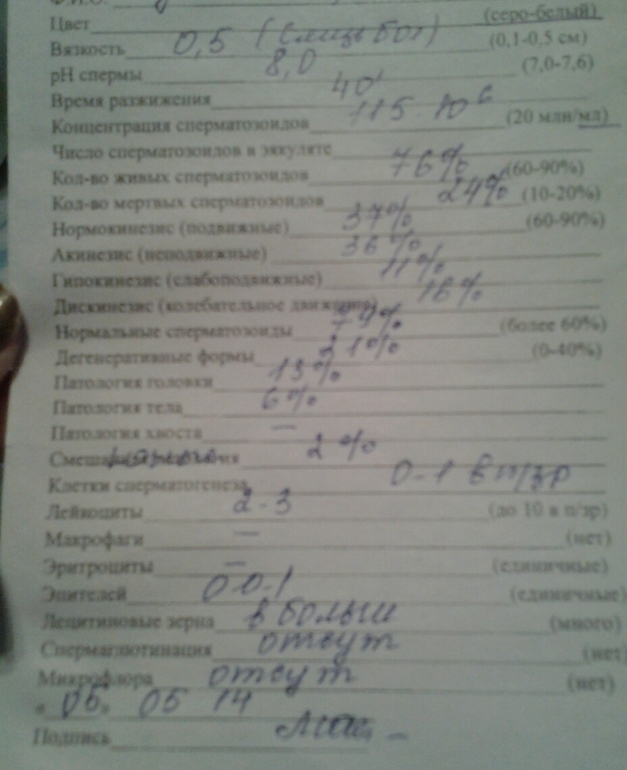 Цвет (серо-белый)
Вязкость 0,5 (слизь бол) (0,1-0,5 см)
pH спермы 8,0 (7,0-7,6)
Время разжижения 40'
Концентрация сперматозоидов 115·10⁶ (20 млн/мл)
Число сперматозоидов в эякуляте
Кол-во живых сперматозоидов 76% (60-90%)
Кол-во мертвых сперматозоидов 24% (10-20%)
Нормокинезис (подвижные) 37% (60-90%)
Акинезис (неподвижные) 36%
Гипокинезис (слабоподвижные) 11%
Дискинезис (колебательное движение) 16%
Нормальные сперматозоиды 79% (более 60%)
Дегенеративные формы 21% (0-40%)
Патология головки 13%
Патология тела 6%
Патология хвоста —
2%
Клетки сперматогенеза 0-1 в п/зр
Лейкоциты 2-3 (до 10 в п/зр)
Макрофаги — (нет)
Эритроциты — (единичные)
Эпителей 0-0-1 (единичные)
Лецитиновые зерна в больш (много)
Спермаглютинация отсут (нет)
Микрофлора отсут (нет)
«06» 05 14
Подпись